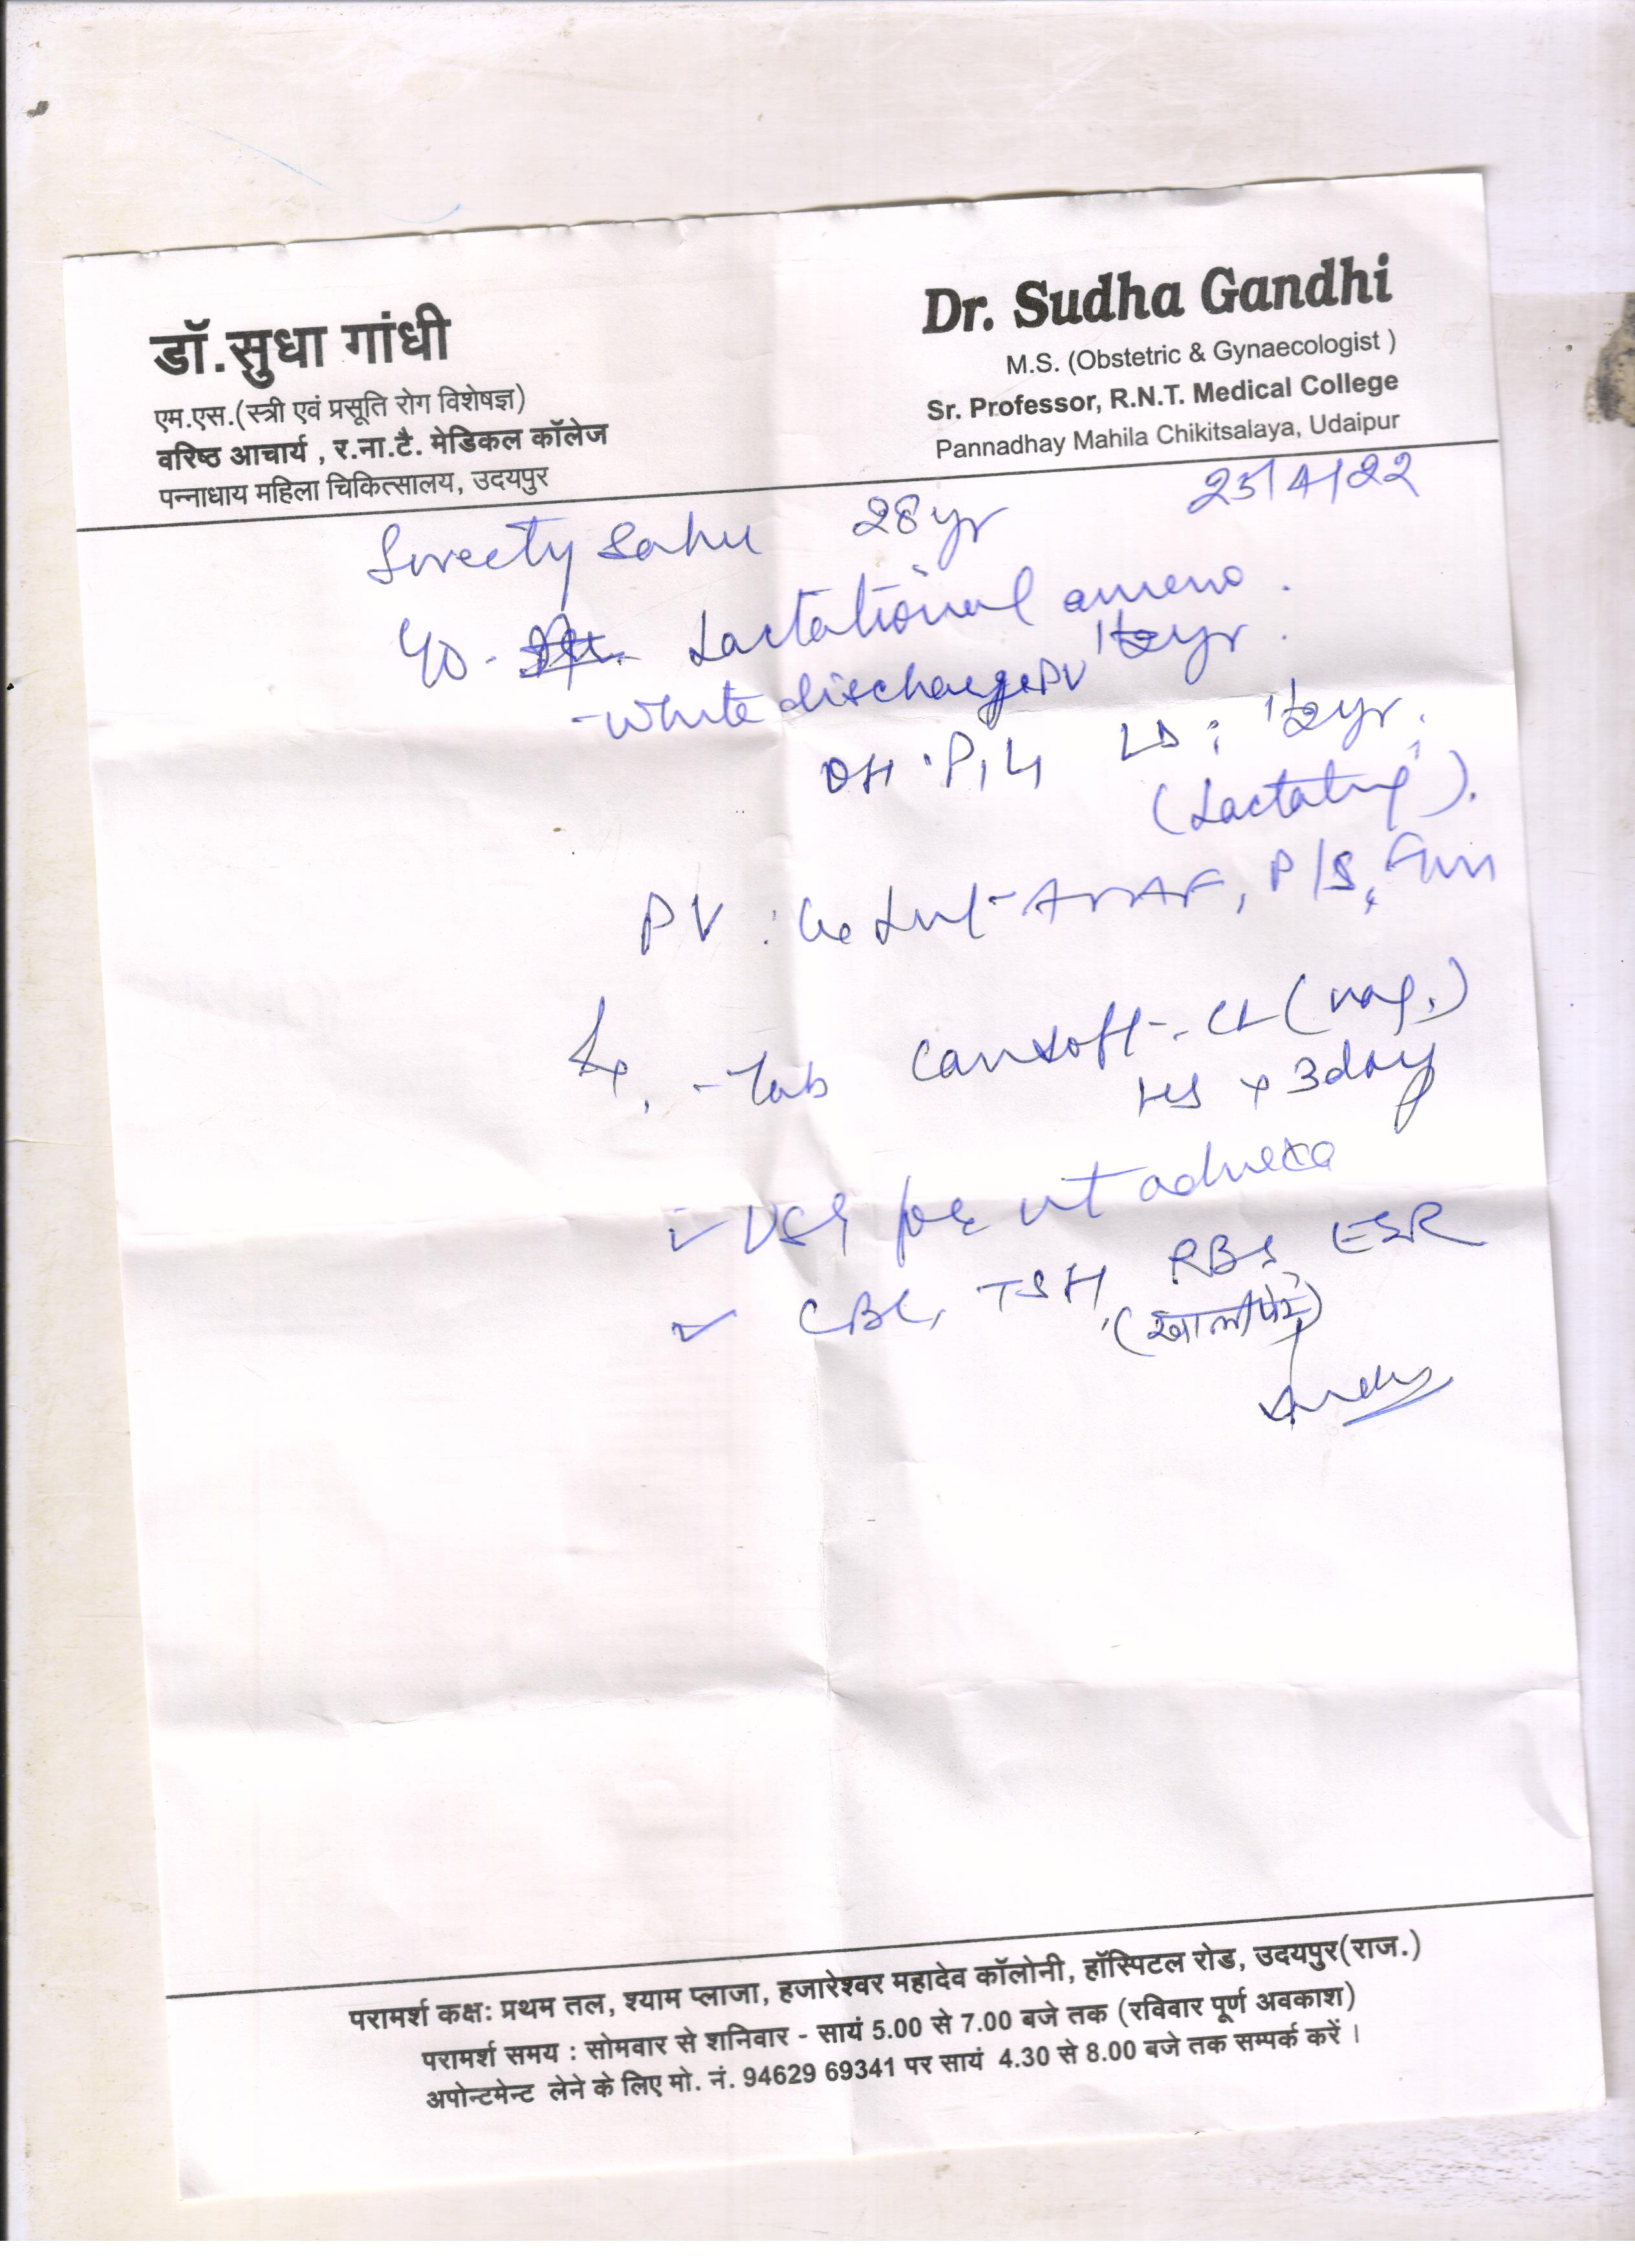 डॉ.सुधा गांधी
एम.एस.(स्त्री एवं प्रसूति रोग विशेषज्ञ)
वरिष्ठ आचार्य , र.ना.टै. मेडिकल कॉलेज
पन्नाधाय महिला चिकित्सालय, उदयपुर
Dr. Sudha Gandhi
M.S. (Obstetric & Gynaecologist )
Sr. Professor, R.N.T. Medical College
Pannadhay Mahila Chikitsalaya, Udaipur
25/4/22
Sweety Sahu 28yr
Lactational ameno.
1½yr.
- White discharge PV
OH : P1L1 LD : 1½yr.
(Lactating).
PV : AVAF, P/S,
- Tab Cansoft-CL (vag.)
HS x 3day
- USG for ut adnexa
CBC, TSH, RBS, ESR
(खाली पेट)
परामर्श कक्ष: प्रथम तल, श्याम प्लाजा, हजारेश्वर महादेव कॉलोनी, हॉस्पिटल रोड, उदयपुर(राज.)
परामर्श समय : सोमवार से शनिवार - सायं 5.00 से 7.00 बजे तक (रविवार पूर्ण अवकाश)
अपोन्टमेन्ट लेने के लिए मो. नं. 94629 69341 पर सायं 4.30 से 8.00 बजे तक सम्पर्क करें ।